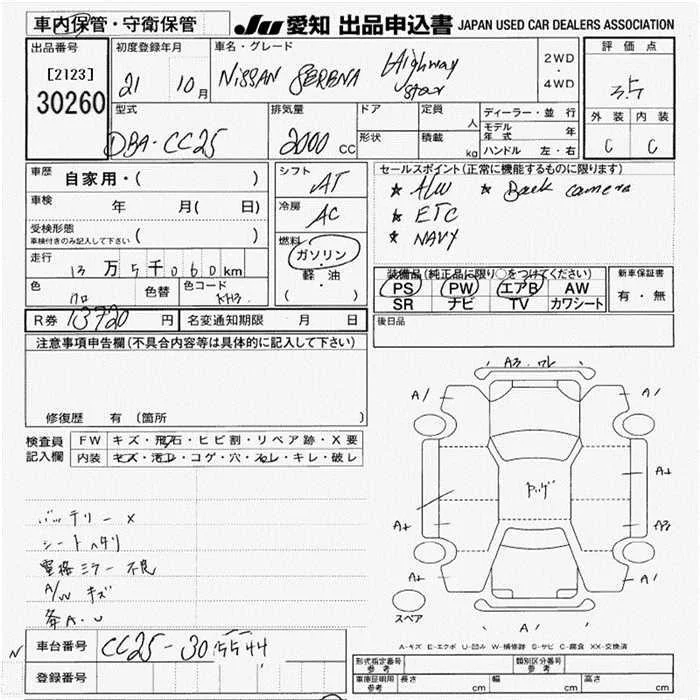 車内保管・守衛保管
JU 愛知 出品申込書 JAPAN USED CAR DEALERS ASSOCIATION
出品番号
[2123]
30260
初度登録年月
21 10月
車名・グレード
NISSAN SERENA Highway Star
2WD
・
4WD
評価点
3.5
外装 内装
C C
型式
DBA-CC25
排気量
2000 cc
ドア
形状
定員
人
積載
kg
ディーラー・並行
モデル年式 年
ハンドル 左・右
車歴
自家用・( )
車検
年 月( 日)
受検形態
車検付きのみ記入して下さい ( )
走行
13万5千060km
色
クロ
色替
色コード
KH3
シフト
AT
冷房
AC
燃料
ガソリン
・
軽・油
( )
セールスポイント(正常に機能するものに限ります)
★ A/W ★ Back camera
★ ETC
★ NAVY
装備品(純正品に限り○をつけてください)
PS PW エアB AW
SR ナビ TV カワシート
新車保証書
有・無
R券 13720 円
名変通知期限 月 日
後日品
注意事項申告欄(不具合内容等は具体的に記入して下さい)
修復歴 有 (箇所 )
検査員記入欄
FW キズ・飛石・ヒビ割・リペア跡・X要
内装 キズ・汚レ・コゲ・穴・スレ・キレ・破レ
バッテリー X
シート ヘタリ
電格ミラー 不良
A/W キズ
各A.U
車台番号
CC25-305544
登録番号
A3.ワレ
A1
A1
A2
A2
A3
A2
A1
A1
スペア
A-キズ E-エクボ U-凹み W-補修跡 S-サビ C-腐食 XX-交換済
形式指定番号 参考
類別区分番号 参考
車庫証明用 参考
長さ cm 幅 cm 高さ cm